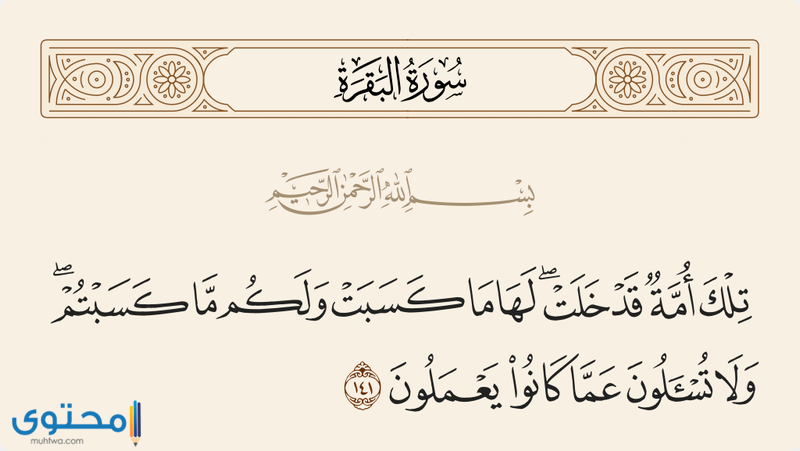 سُورَةُ البَقَرَةِ
بِسْمِ اللَّهِ الرَّحْمَٰنِ الرَّحِيمِ
تِلْكَ أُمَّةٌ قَدْ خَلَتْ ۖ لَهَا مَا كَسَبَتْ وَلَكُم مَّا كَسَبْتُمْ ۖ
وَلَا تُسْـَٔلُونَ عَمَّا كَانُوا۟ يَعْمَلُونَ ١٤١
محتوى
muhtwa.com